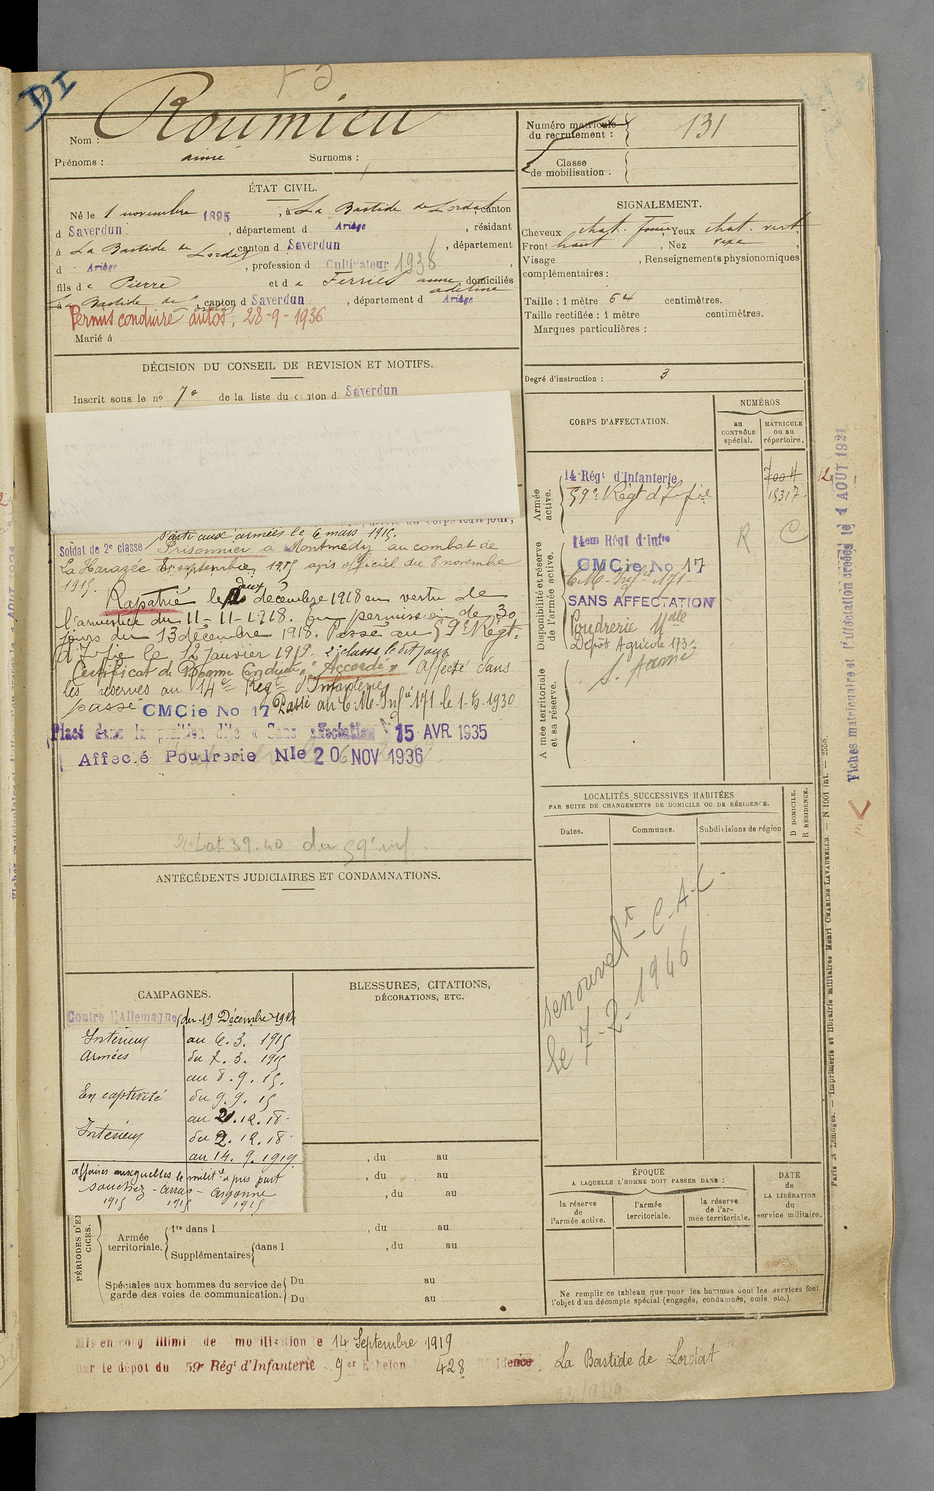 DI
Roumieu
Nom :
Prénoms : aimé Surnoms :
Numéro matricule du recrutement : 131
Classe de mobilisation :
ÉTAT CIVIL.
Né le 1 novembre 1895, à La Bastide de Lordat, canton
d Saverdun, département d Ariège, résidant
à La Bastide de Lordat canton d Saverdun, département
d Ariège, profession d Cultivateur 1938,
fils de Pierre et de Ferriès anne adeline domiciliés
La Bastide de canton d Saverdun, département d Ariège
Permis conduire autos, 28-9-1936
Marié à
SIGNALEMENT.
Cheveux chat. foncé, Yeux chat. vert,
Front haut, Nez,
Visage, Renseignements physionomiques
complémentaires :
Taille : 1 mètre 64 centimètres.
Taille rectifiée : 1 mètre centimètres.
Marques particulières :
Degré d'instruction : 3
DÉCISION DU CONSEIL DE REVISION ET MOTIFS.
Inscrit sous le nº 7 de la liste du canton d Saverdun
Parti aux armées le 6 mars 1915.
Soldat de 2e classe Prisonnier a Montmedy au combat de
La Harazée 8 septembre 1915 avis officiel du 8 novembre
1915.
Rapatrié le deux décembre 1918 en vertu de
l'armistice du 11-11-1918. En permission de 30
jours du 13 décembre 1918. Passé au 59e Régt
d'Infie le 12 Janvier 1919. 2e classe le dit jour
Certificat de Bonne Conduite "Accordé" Affecté dans
les réserves au 14e Régt d'Infanterie
passé CMCie No 17 Passé au C.M. Inf 171 le 1-5-1930
Placé dans la position dite « Sans affectation » 15 AVR. 1935
Affecté Poudrerie Nle 20 NOV 1936
39-40 du 59e inf.
CORPS D'AFFECTATION.
NUMÉROS
au CONTRÔLE spécial.
MATRICULE ou au répertoire.
Armée active.
14 Régt d'Infanterie
59e Régt d'Infie
7004
15317
Disponibilité et réserve de l'armée active.
14em Régt d'Infie
R C
CMCie No 17
C.M. Infie 171
SANS AFFECTATION
Poudrerie Nale
Dépôt Agricole
Armée territoriale et sa réserve.
LOCALITÉS SUCCESSIVES HABITÉES
PAR SUITE DE CHANGEMENTS DE DOMICILE OU DE RÉSIDENCE.
Dates. Communes. Subdivisions de région
D DOMICILE. R RÉSIDENCE.
renouvelt C-A-C
le 7-2-1946
ANTÉCÉDENTS JUDICIAIRES ET CONDAMNATIONS.
CAMPAGNES.
Contre l'Allemagne du 19 Décembre 1914
Intérieur au 6. 3. 1915
Armées du 7. 3. 1915
au 8. 9. 15.
En captivité du 9. 9. 15
au 2.12.18
Intérieur du 2.12.18
au 14. 9. 1919
Affaires auxquelles le milite a pris part
Souchez - Arras - Argonne
1915 1915 1915
BLESSURES, CITATIONS,
DÉCORATIONS, ETC.
, du au
, du au
, du au
Armée territoriale.
1re dans l , du au
Supplémentaires dans l , du au
Spéciales aux hommes du service de garde des voies de communication.
Du au
Du au
ÉPOQUE
A LAQUELLE L'HOMME DOIT PASSER DANS :
la réserve de l'armée active.
l'armée territoriale.
la réserve de l'armée territoriale.
DATE de LA LIBÉRATION du service militaire.
Ne remplir ce tableau que pour les hommes dont les services font
l'objet d'un décompte spécial (engagés, condamnés, omis etc.).
Mis en congé illimité de mobilisation le 14 Septembre 1919
par le dépôt du 59e Régt d'Infanterie 9er Echelon 428 Résidence, La Bastide de Lordat
Fiches matricules et d'affectation créées le 1 AOUT 1931
Paris et Limoges. — Imprimerie et librairie militaires Henri CHARLES-LAVAUZELLE. — N 1001 int. — 2558.